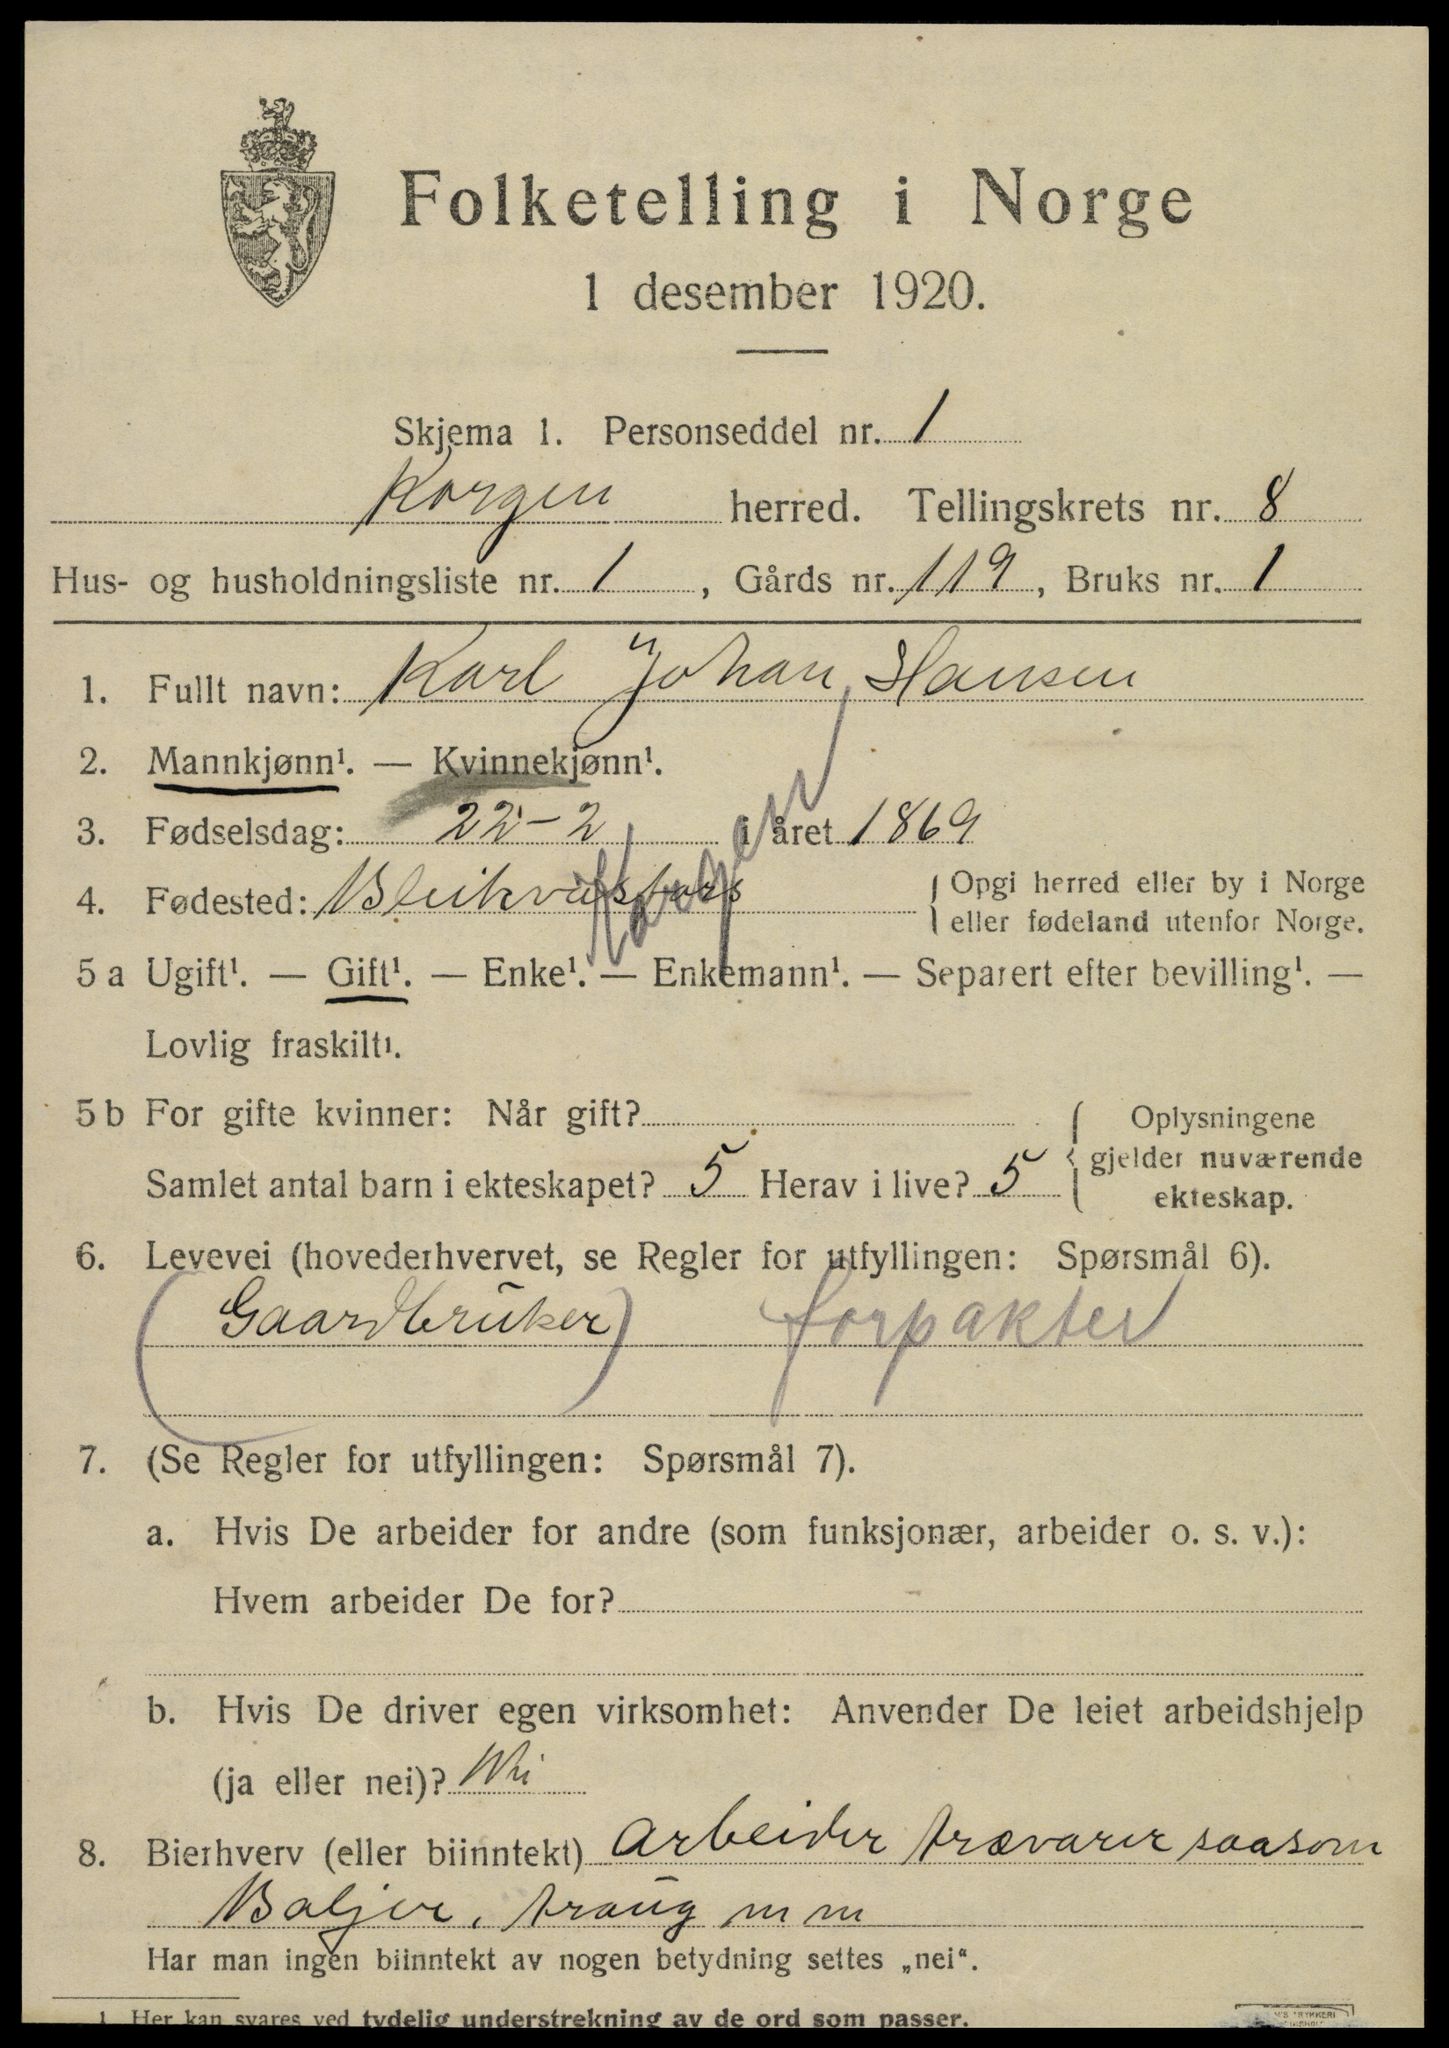 Folketelling i Norge
1 desember 1920.
Skjema 1. Personseddel nr. 1
Korgen herred. Tellingskrets nr. 8
Hus- og husholdningsliste nr. 1, Gårds nr. 119, Bruks nr. 1
1. Fullt navn: Karl Johan Hansen
2. Mannkjønn¹. — Kvinnekjønn¹.
3. Fødselsdag: 22-2 i året 1869
4. Fødested: Korgen { Opgi herred eller by i Norge
eller fødeland utenfor Norge.
5 a Ugift¹. — Gift¹. — Enke¹. — Enkemann¹. — Separert efter bevilling¹. —
Lovlig fraskilt¹.
5 b For gifte kvinner: Når gift?
Samlet antal barn i ekteskapet? 5 Herav i live? 5
{ Oplysningene
gjelder nuværende
ekteskap.
6. Levevei (hovederhvervet, se Regler for utfyllingen: Spørsmål 6).
(Gaardbruker) forpakter
7. (Se Regler for utfyllingen: Spørsmål 7).
a. Hvis De arbeider for andre (som funksjonær, arbeider o. s. v.):
Hvem arbeider De for?
b. Hvis De driver egen virksomhet: Anvender De leiet arbeidshjelp
(ja eller nei)? Nei
8. Bierhverv (eller biinntekt) arbeider trævarer saasom
Baljer, traug m m
Har man ingen biinntekt av nogen betydning settes „nei“.
1 Her kan svares ved tydelig understrekning av de ord som passer.